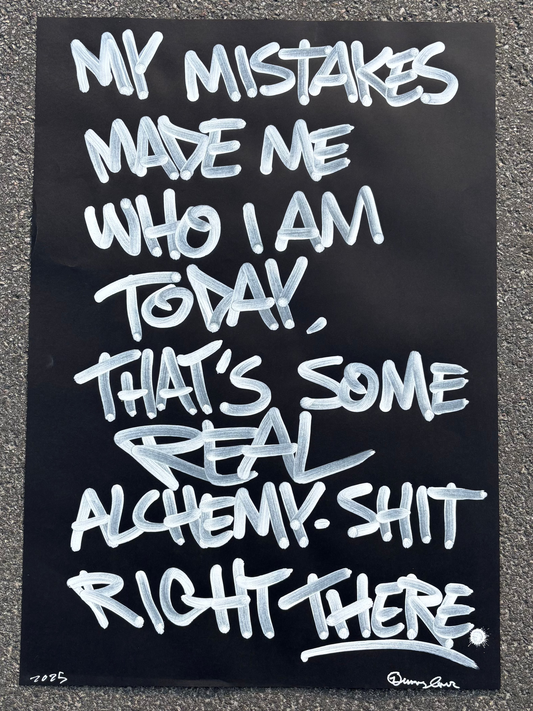 MY MISTAKES
MADE ME
WHO I AM
TODAY,
THAT'S SOME
REAL
ALCHEMY-SHIT
RIGHT THERE.
2025